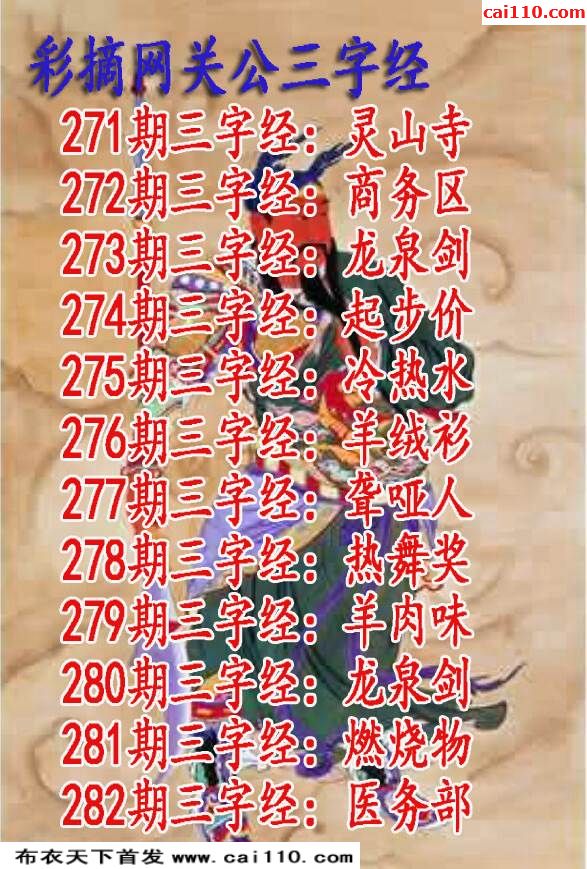 cai110.com
彩摘网关公三字经
271期三字经：灵山寺
272期三字经：商务区
273期三字经：龙泉剑
274期三字经：起步价
275期三字经：冷热水
276期三字经：羊绒衫
277期三字经：聋哑人
278期三字经：热舞奖
279期三字经：羊肉味
280期三字经：龙泉剑
281期三字经：燃烧物
282期三字经：医务部
布衣天下首发 www.cai110.com